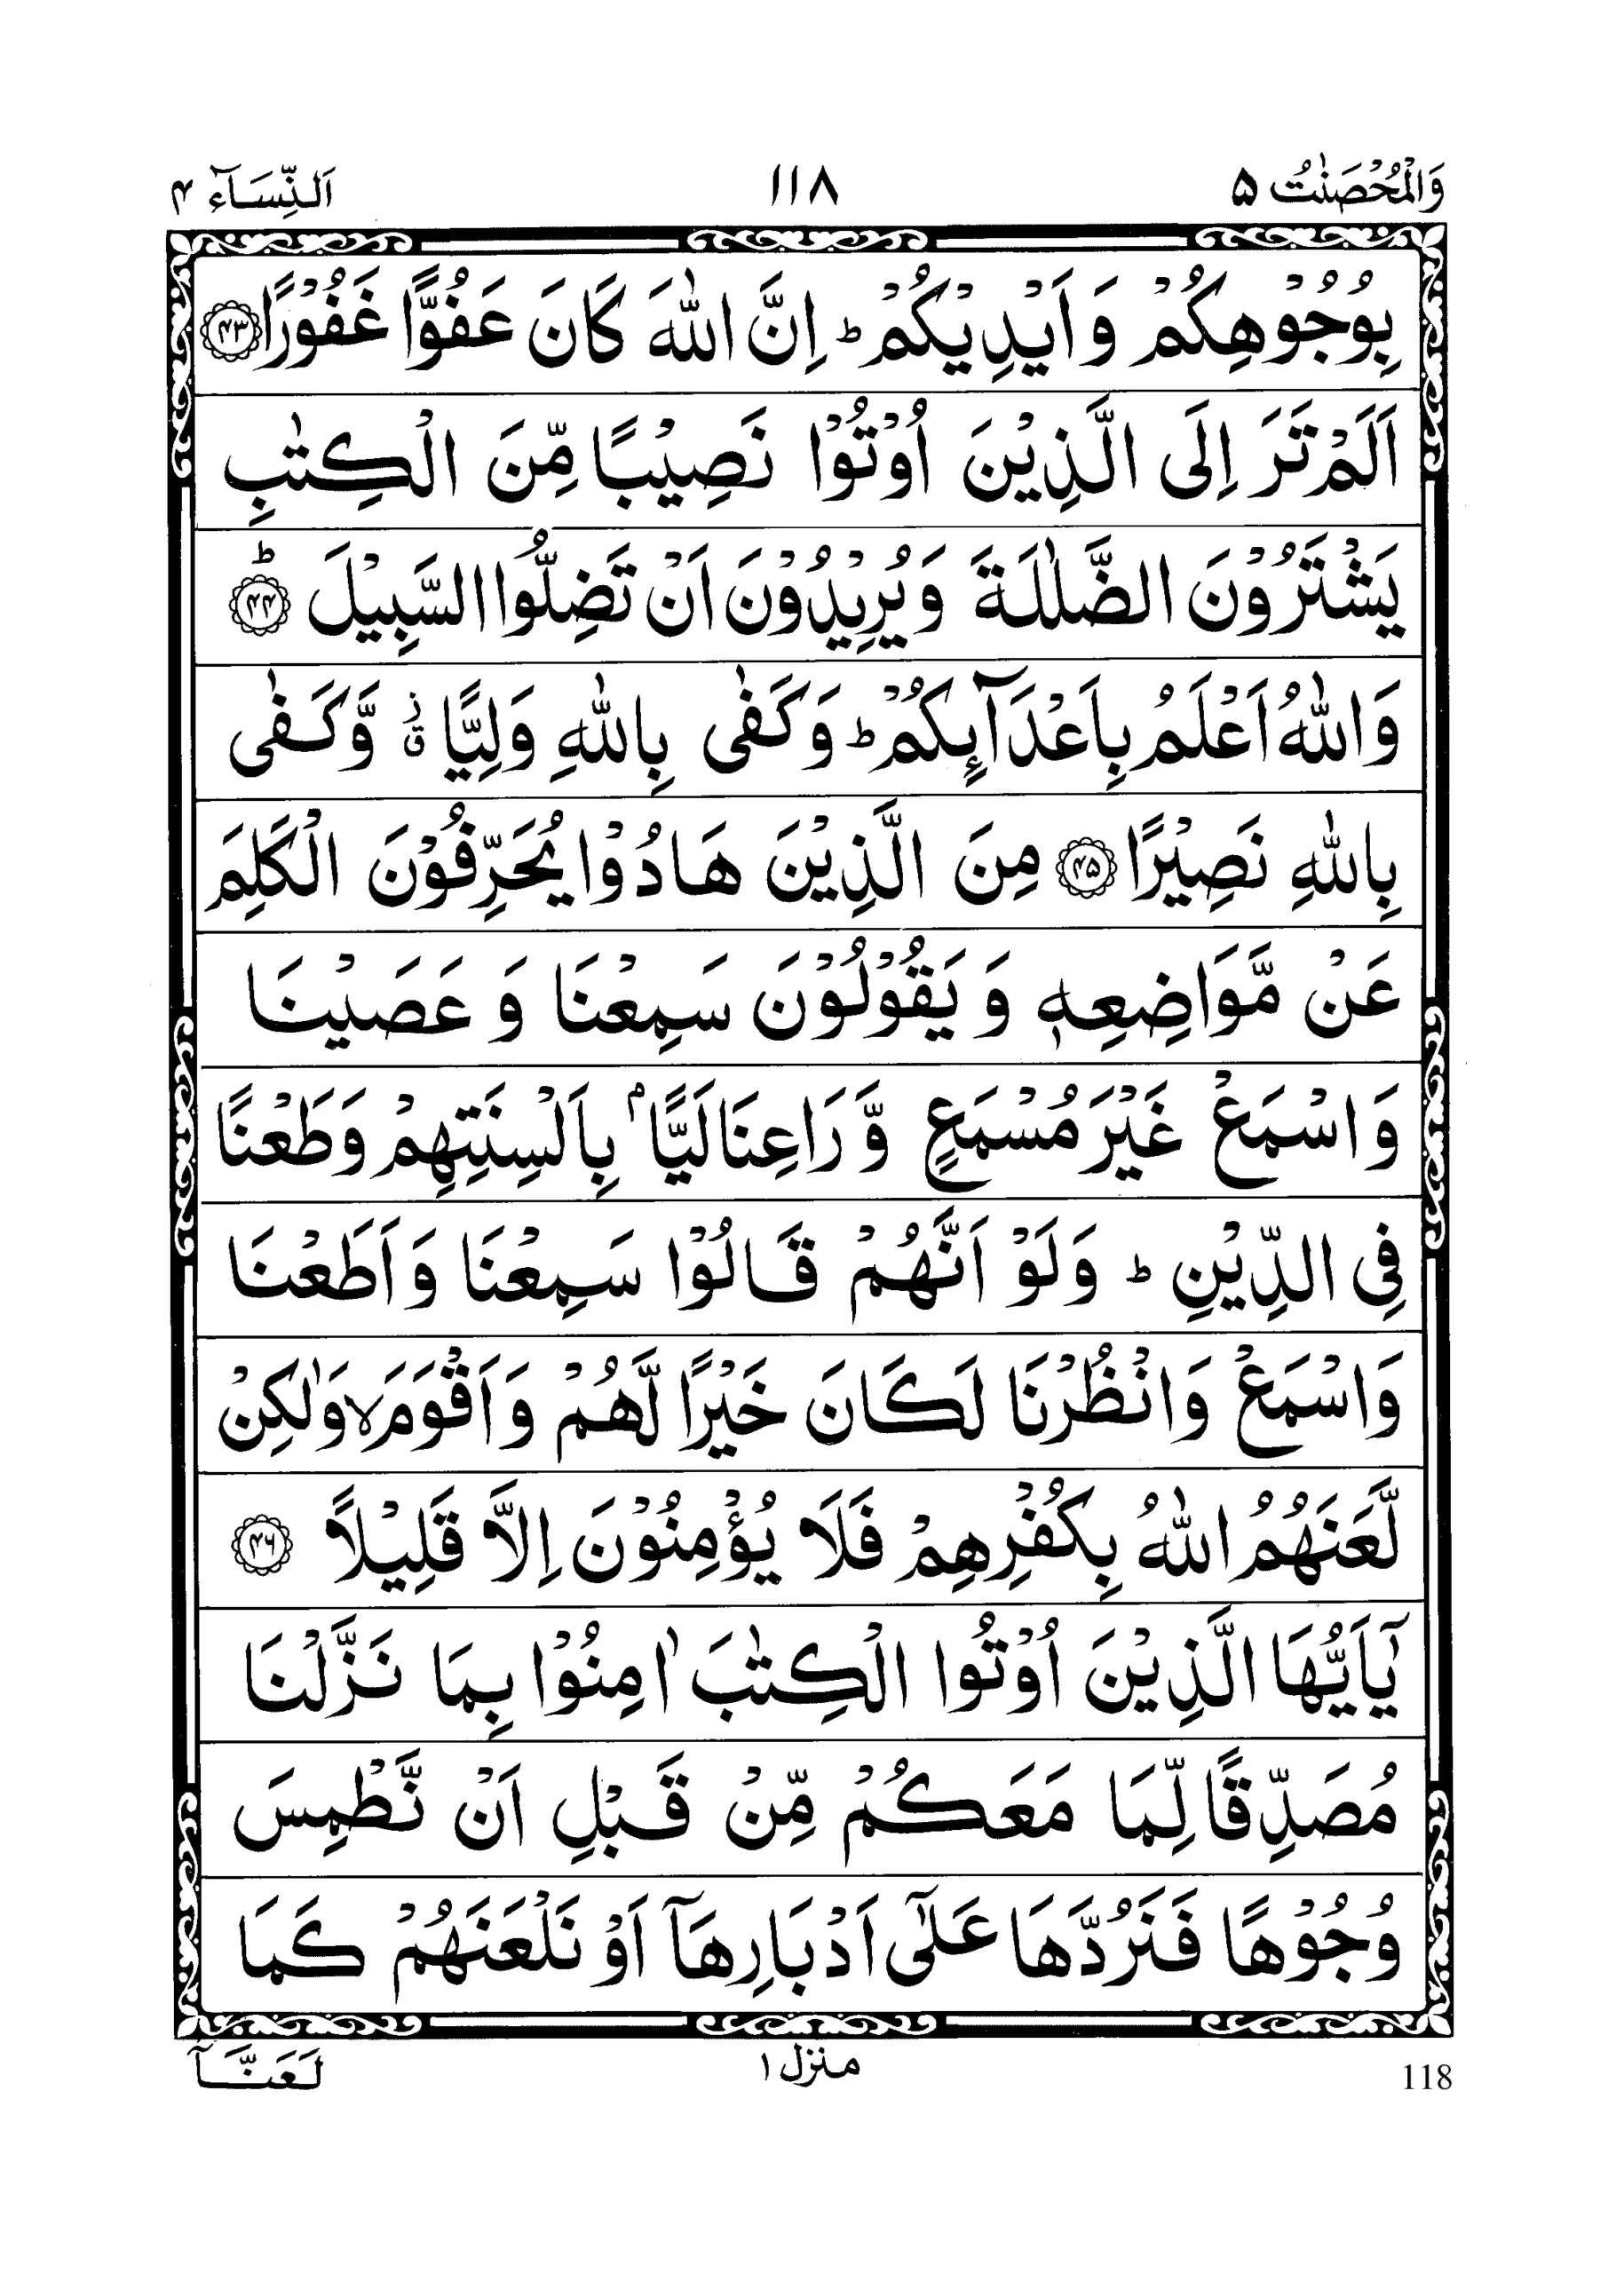 وَالْمُحْصَنٰتُ ۵ ۱۱۸ اَلنِّسَآء ۴
بِوُجُوْهِكُمْ وَ اَيْدِيْكُمْ ؕ اِنَّ اللّٰهَ كَانَ عَفُوًّا غَفُوْرًا ﴿۴۳﴾
اَلَمْ تَرَ اِلَى الَّذِيْنَ اُوْتُوْا نَصِيْبًا مِّنَ الْكِتٰبِ
يَشْتَرُوْنَ الضَّلٰلَةَ وَ يُرِيْدُوْنَ اَنْ تَضِلُّوا السَّبِيْلَ ﴿۴۴﴾ؕ
وَ اللّٰهُ اَعْلَمُ بِاَعْدَآىِٕكُمْ ؕ وَ كَفٰى بِاللّٰهِ وَلِيًّا ۗۙ وَّ كَفٰى
بِاللّٰهِ نَصِيْرًا ﴿۴۵﴾ مِنَ الَّذِيْنَ هَادُوْا يُحَرِّفُوْنَ الْكَلِمَ
عَنْ مَّوَاضِعِهٖ وَ يَقُوْلُوْنَ سَمِعْنَا وَ عَصَيْنَا
وَ اسْمَعْ غَيْرَ مُسْمَعٍ وَّ رَاعِنَا لَيًّۢا بِاَلْسِنَتِهِمْ وَ طَعْنًا
فِي الدِّيْنِ ؕ وَ لَوْ اَنَّهُمْ قَالُوْا سَمِعْنَا وَ اَطَعْنَا
وَ اسْمَعْ وَ انْظُرْنَا لَكَانَ خَيْرًا لَّهُمْ وَ اَقْوَمَ ۙ وَ لٰكِنْ
لَّعَنَهُمُ اللّٰهُ بِكُفْرِهِمْ فَلَا يُؤْمِنُوْنَ اِلَّا قَلِيْلًا ﴿۴۶﴾
يٰۤاَيُّهَا الَّذِيْنَ اُوْتُوا الْكِتٰبَ اٰمِنُوْا بِمَا نَزَّلْنَا
مُصَدِّقًا لِّمَا مَعَكُمْ مِّنْ قَبْلِ اَنْ نَّطْمِسَ
وُجُوْهًا فَنَرُدَّهَا عَلٰۤى اَدْبَارِهَاۤ اَوْ نَلْعَنَهُمْ كَمَا
منزل ۱ لَعَنَّاۤ
118